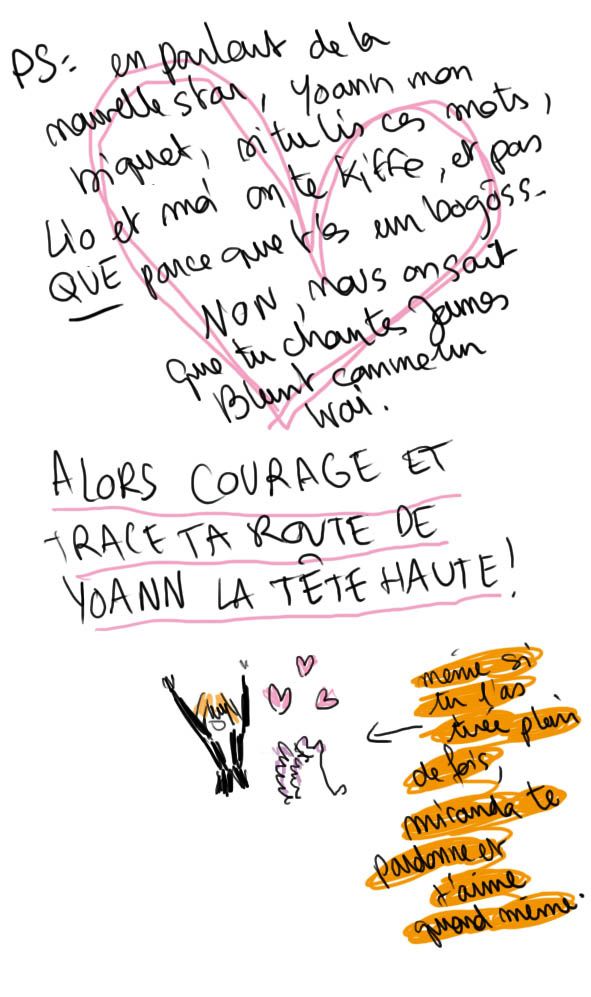 PS: en parlant de la
nouvelle star, Yoann mon
biquet, si tu lis ces mots,
Lio et moi on te kiffe, et pas
QUE parce que t'es un bogoss.
NON, mais on sait
que tu chantes James
Blunt comme un
vrai.
ALORS COURAGE ET
TRACE TA ROUTE DE
YOANN LA TÊTE HAUTE!
même si
tu l'as
tuée plein
de fois,
miranda te
pardonne et
t'aime
quand même.